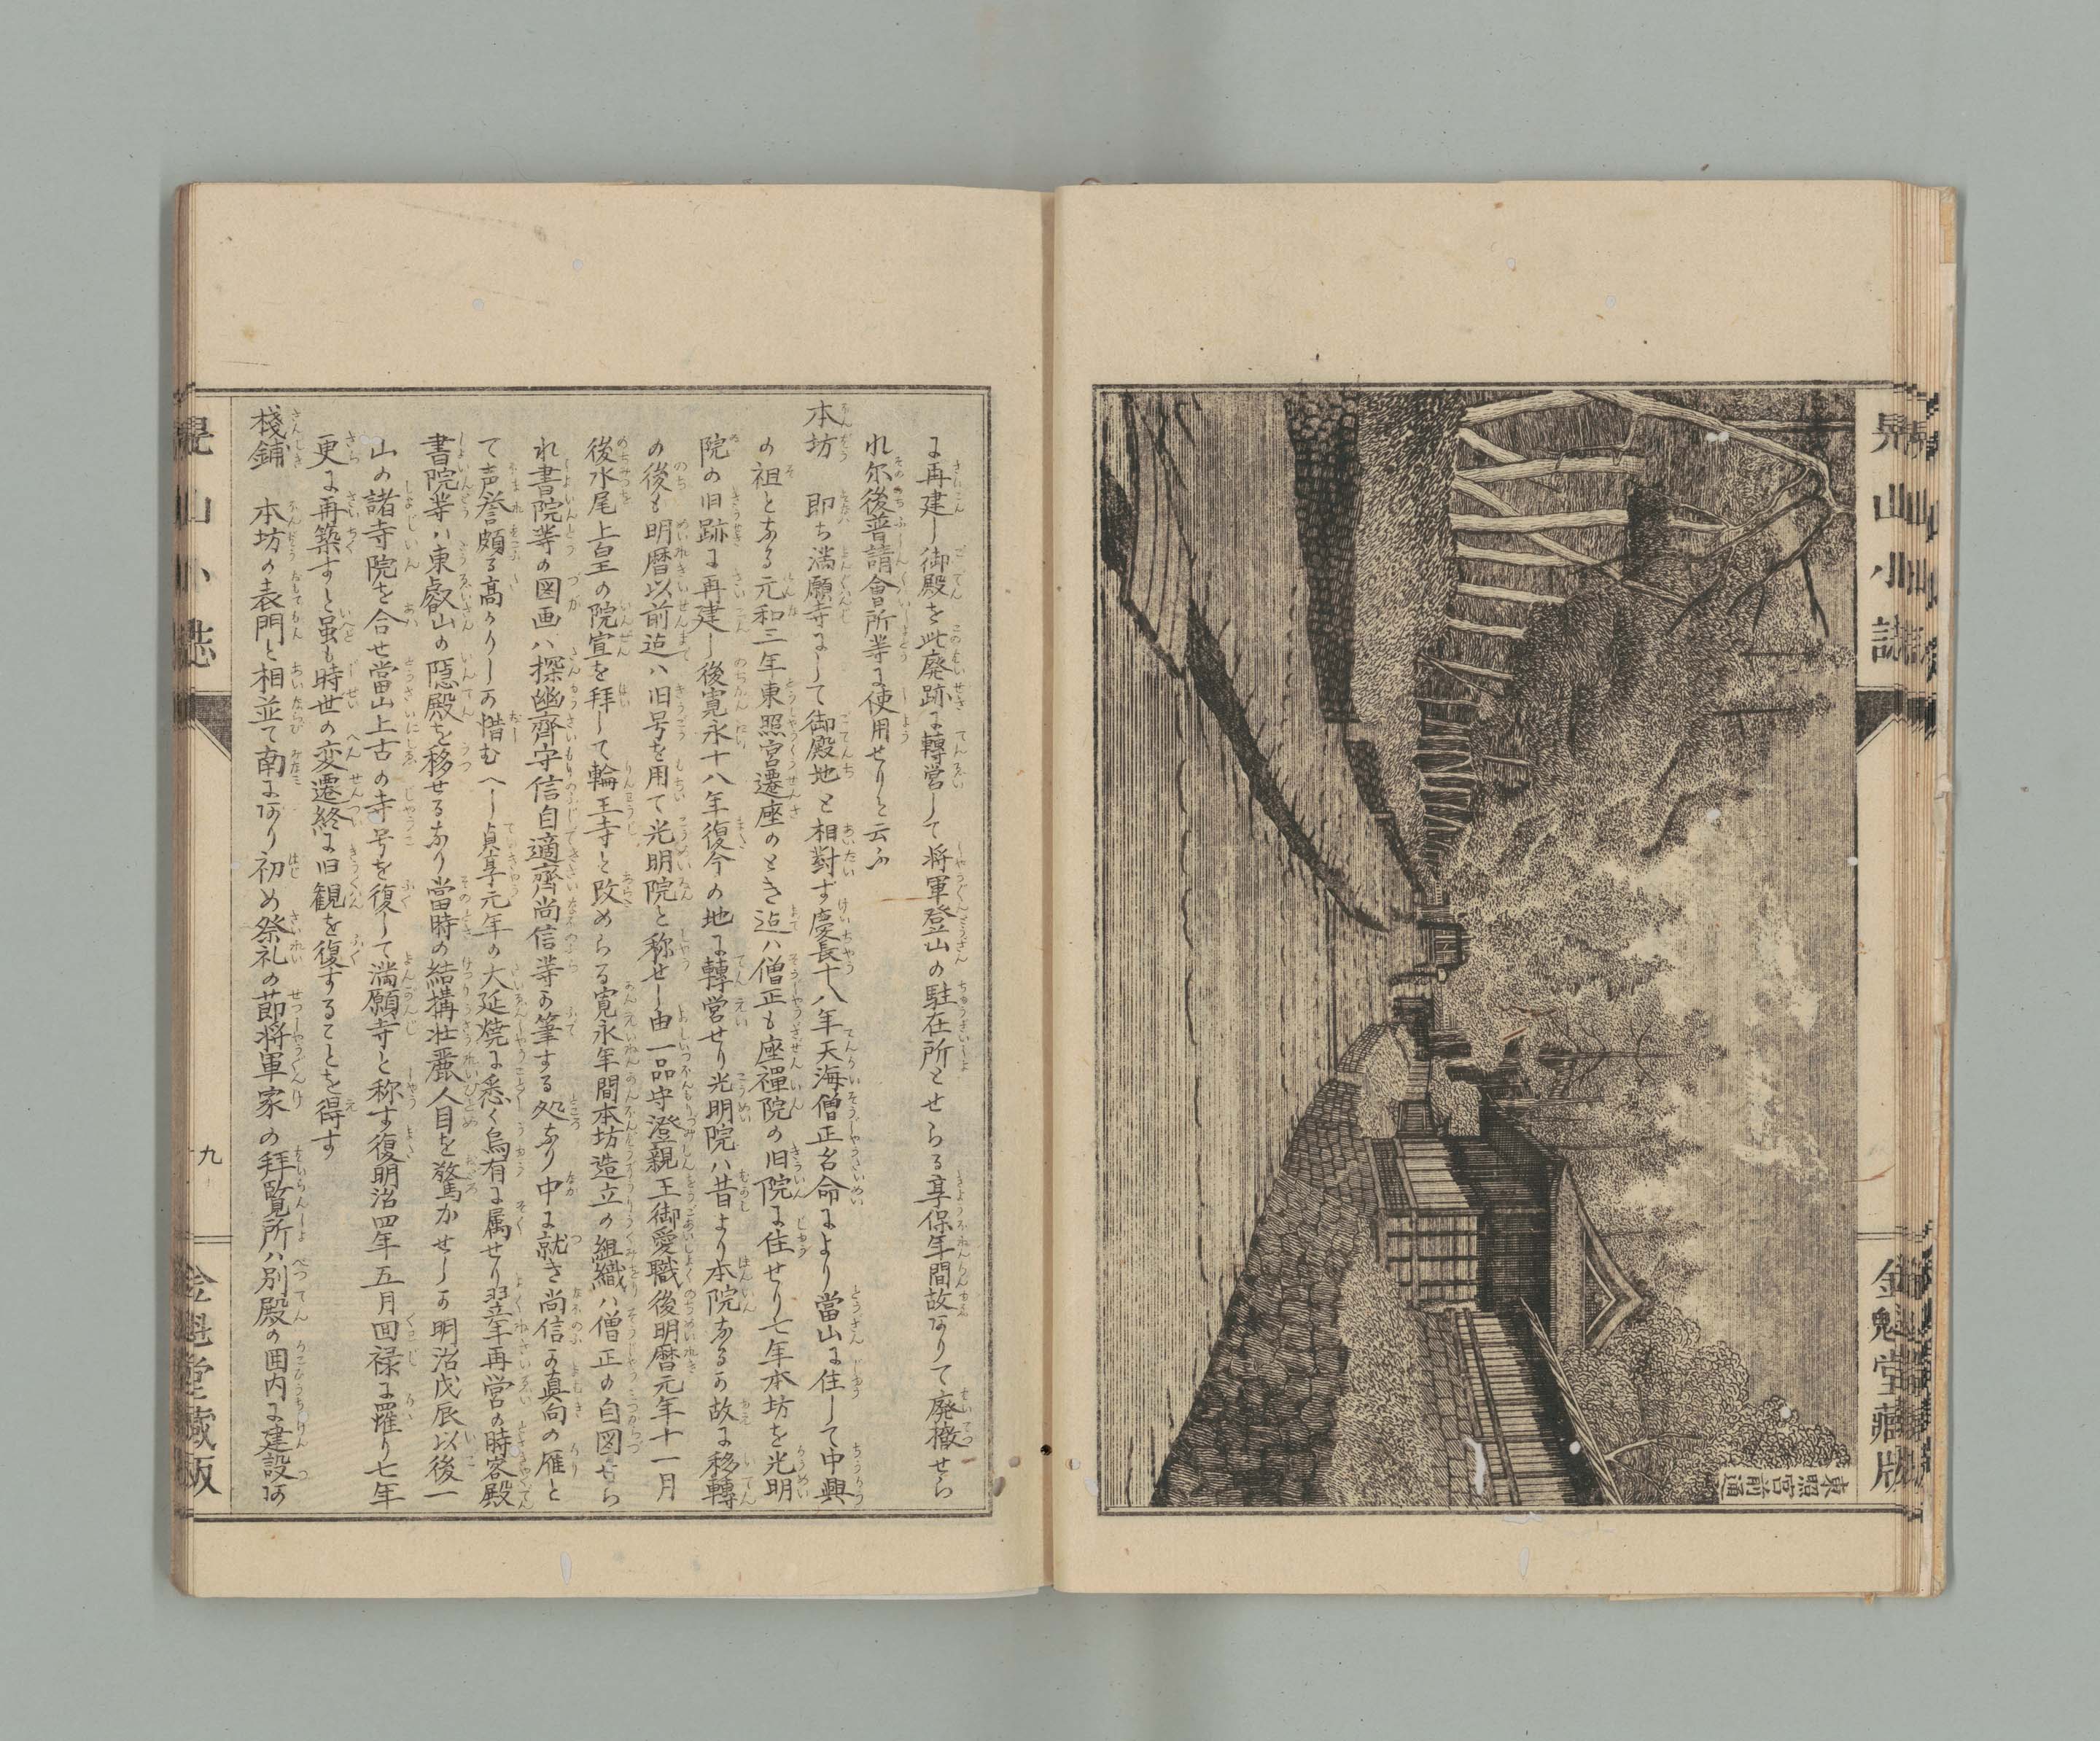 晃山小誌
金魁堂蔵版
東照宮前通
に再建し御殿を此廃跡に轉営して将軍登山の駐在所とせらる享保年間故ありて廃撤せら
れ尓後普請會所等に使用せりと云ふ
本坊 即ち満願寺にして御殿地と相對す慶長十八年天海僧正台命により當山に住して中興
の祖となる元和三年東照宮遷座のとき迠ハ僧正も座禪院の旧院に住せり七年本坊を光明
院の旧跡に再建し後寛永十八年復今の地に轉営せり光明院ハ昔より本院なるか故に移轉
の後も明暦以前迠ハ旧号を用て光明院と称せし由一品守澄親王御愛職後明暦元年十一月
後水尾上皇の院宣を拝して輪王寺と改めらる寛永年間本坊造立の組織ハ僧正の自図せら
れ書院等の図画ハ探幽齊守信自適齊尚信等の筆する処なり中に就き尚信の真向の雁と
て声誉頗る高かりしか惜むへし貞享元年の大延焼に悉く烏有に属せり翌年再営の時客殿
書院等ハ東叡山の隠殿を移せるなり當時の結構壮麗人目を驚かせしか明治戊辰以後一
山の諸寺院を合せ當山上古の寺号を復して満願寺と称す復明治四年五月回禄に罹り七年
更に再築すと雖も時世の変遷終に旧観を復することを得す
棧鋪 本坊の表門と相並て南にあり初め祭礼の節将軍家の拝覧所ハ別殿の囲内に建設あ
晃山小誌
九
金魁堂蔵版